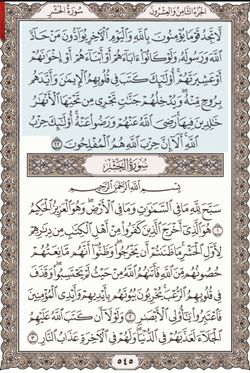 الجزء الثامن والعشرون سورة الحشر
لَّا تَجِدُ قَوْمًا يُؤْمِنُونَ بِٱللَّهِ وَٱلْيَوْمِ ٱلْءَاخِرِ يُوَآدُّونَ مَنْ حَآدَّ
ٱللَّهَ وَرَسُولَهُۥ وَلَوْ كَانُوٓا۟ ءَابَآءَهُمْ أَوْ أَبْنَآءَهُمْ أَوْ إِخْوَٰنَهُمْ
أَوْ عَشِيرَتَهُمْ ۚ أُو۟لَٰٓئِكَ كَتَبَ فِى قُلُوبِهِمُ ٱلْإِيمَٰنَ وَأَيَّدَهُم
بِرُوحٍ مِّنْهُ ۖ وَيُدْخِلُهُمْ جَنَّٰتٍ تَجْرِى مِن تَحْتِهَا ٱلْأَنْهَٰرُ
خَٰلِدِينَ فِيهَا ۚ رَضِىَ ٱللَّهُ عَنْهُمْ وَرَضُوا۟ عَنْهُ ۚ أُو۟لَٰٓئِكَ حِزْبُ
ٱللَّهِ ۚ أَلَآ إِنَّ حِزْبَ ٱللَّهِ هُمُ ٱلْمُفْلِحُونَ ٢٢
سُورَةُ الحَشْرِ
بِسْمِ ٱللَّهِ ٱلرَّحْمَٰنِ ٱلرَّحِيمِ
سَبَّحَ لِلَّهِ مَا فِى ٱلسَّمَٰوَٰتِ وَمَا فِى ٱلْأَرْضِ ۖ وَهُوَ ٱلْعَزِيزُ ٱلْحَكِيمُ
١ هُوَ ٱلَّذِىٓ أَخْرَجَ ٱلَّذِينَ كَفَرُوا۟ مِنْ أَهْلِ ٱلْكِتَٰبِ مِن دِيَٰرِهِمْ
لِأَوَّلِ ٱلْحَشْرِ ۚ مَا ظَنَنتُمْ أَن يَخْرُجُوا۟ ۖ وَظَنُّوٓا۟ أَنَّهُم مَّانِعَتُهُمْ
حُصُونُهُم مِّنَ ٱللَّهِ فَأَتَىٰهُمُ ٱللَّهُ مِنْ حَيْثُ لَمْ يَحْتَسِبُوا۟ ۖ وَقَذَفَ
فِى قُلُوبِهِمُ ٱلرُّعْبَ ۚ يُخْرِبُونَ بُيُوتَهُم بِأَيْدِيهِمْ وَأَيْدِى ٱلْمُؤْمِنِينَ
فَٱعْتَبِرُوا۟ يَٰٓأُو۟لِى ٱلْأَبْصَٰرِ ٢ وَلَوْلَآ أَن كَتَبَ ٱللَّهُ عَلَيْهِمُ
ٱلْجَلَآءَ لَعَذَّبَهُمْ فِى ٱلدُّنْيَا ۖ وَلَهُمْ فِى ٱلْءَاخِرَةِ عَذَابُ ٱلنَّارِ ٣
٥٤٥